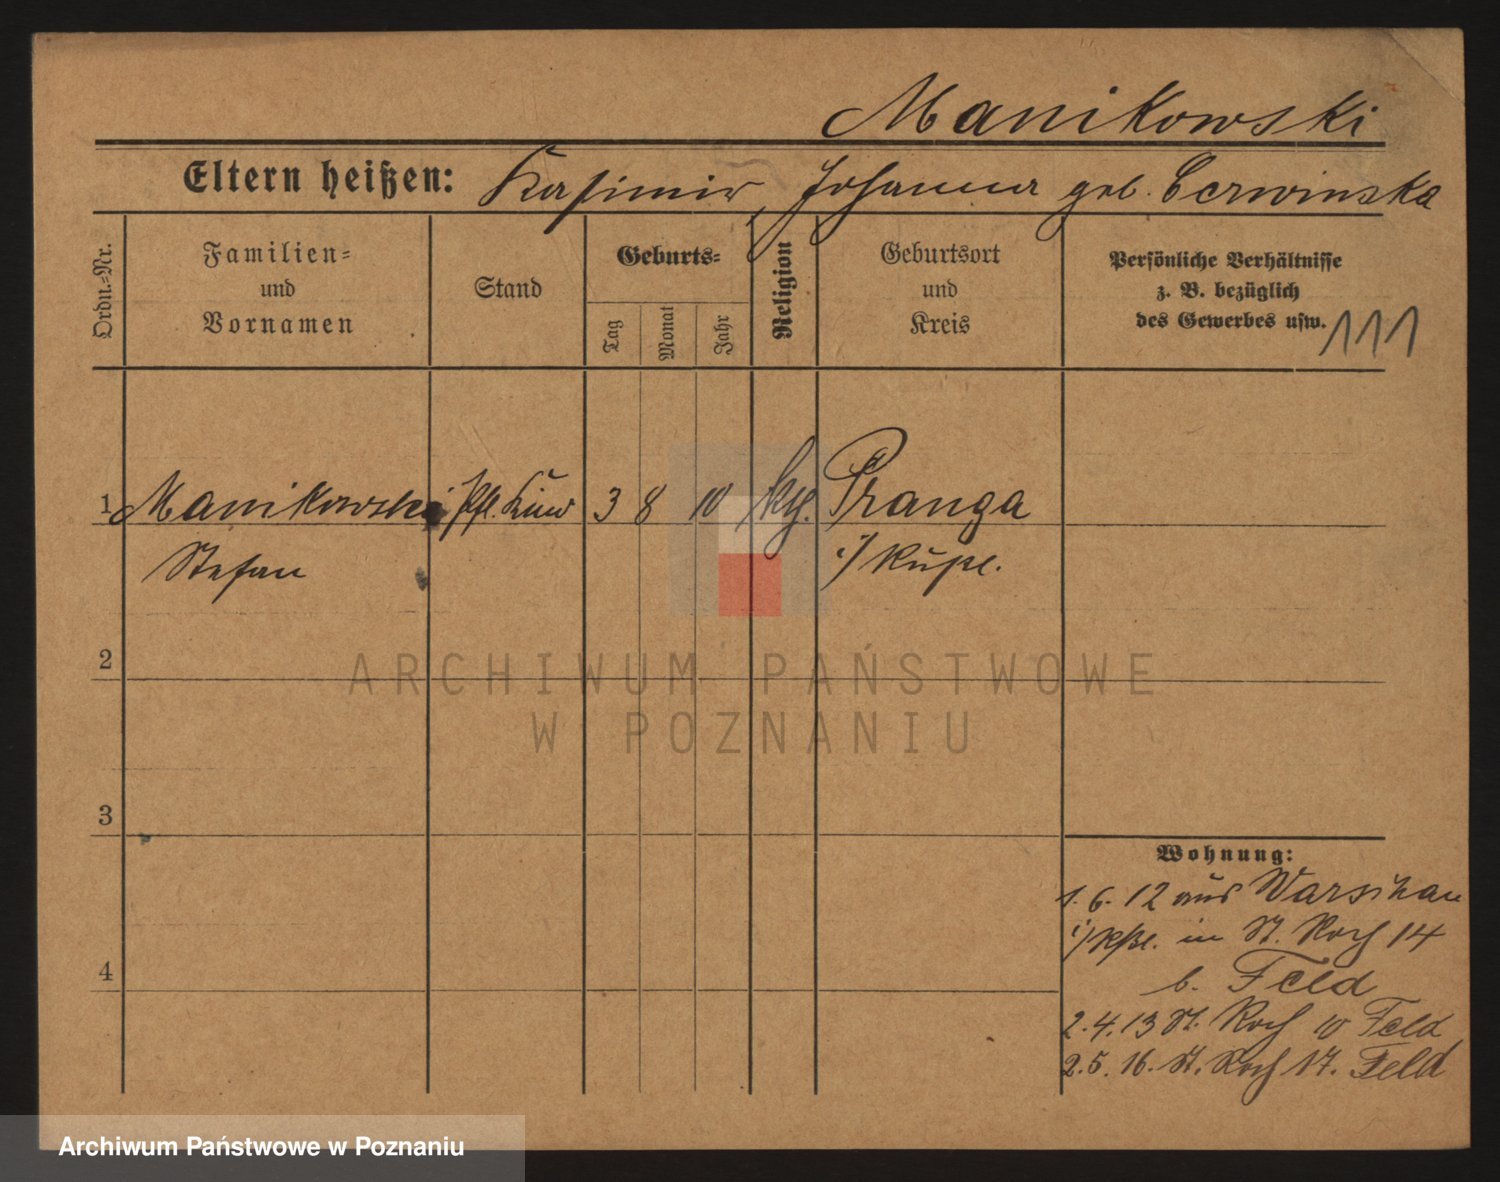 Manikowski
Eltern heißen: Kasimir, Johanna geb. Cerwinska
Ordn.-Nr.
Familien-
und
Vornamen
Stand
Geburts-
Tag
Monat
Jahr
Religion
Geburtsort
und
Kreis
Persönliche Verhältnisse
z. B. bezüglich
des Gewerbes usw.
111
1 Manikowski Pfl. Kind 3 8 10 kth. Pranga
Stefan i/ Rußl.
2
3
4
Wohnung:
1. 6. 12 aus Warschau
i/ Rßl. in St. Roch 14
b. Feld
2. 4. 13 St. Roch 10 Feld
2. 5. 16. St. Roch 17. Feld
ARCHIWUM PAŃSTWOWE
W POZNANIU
Archiwum Państwowe w Poznaniu